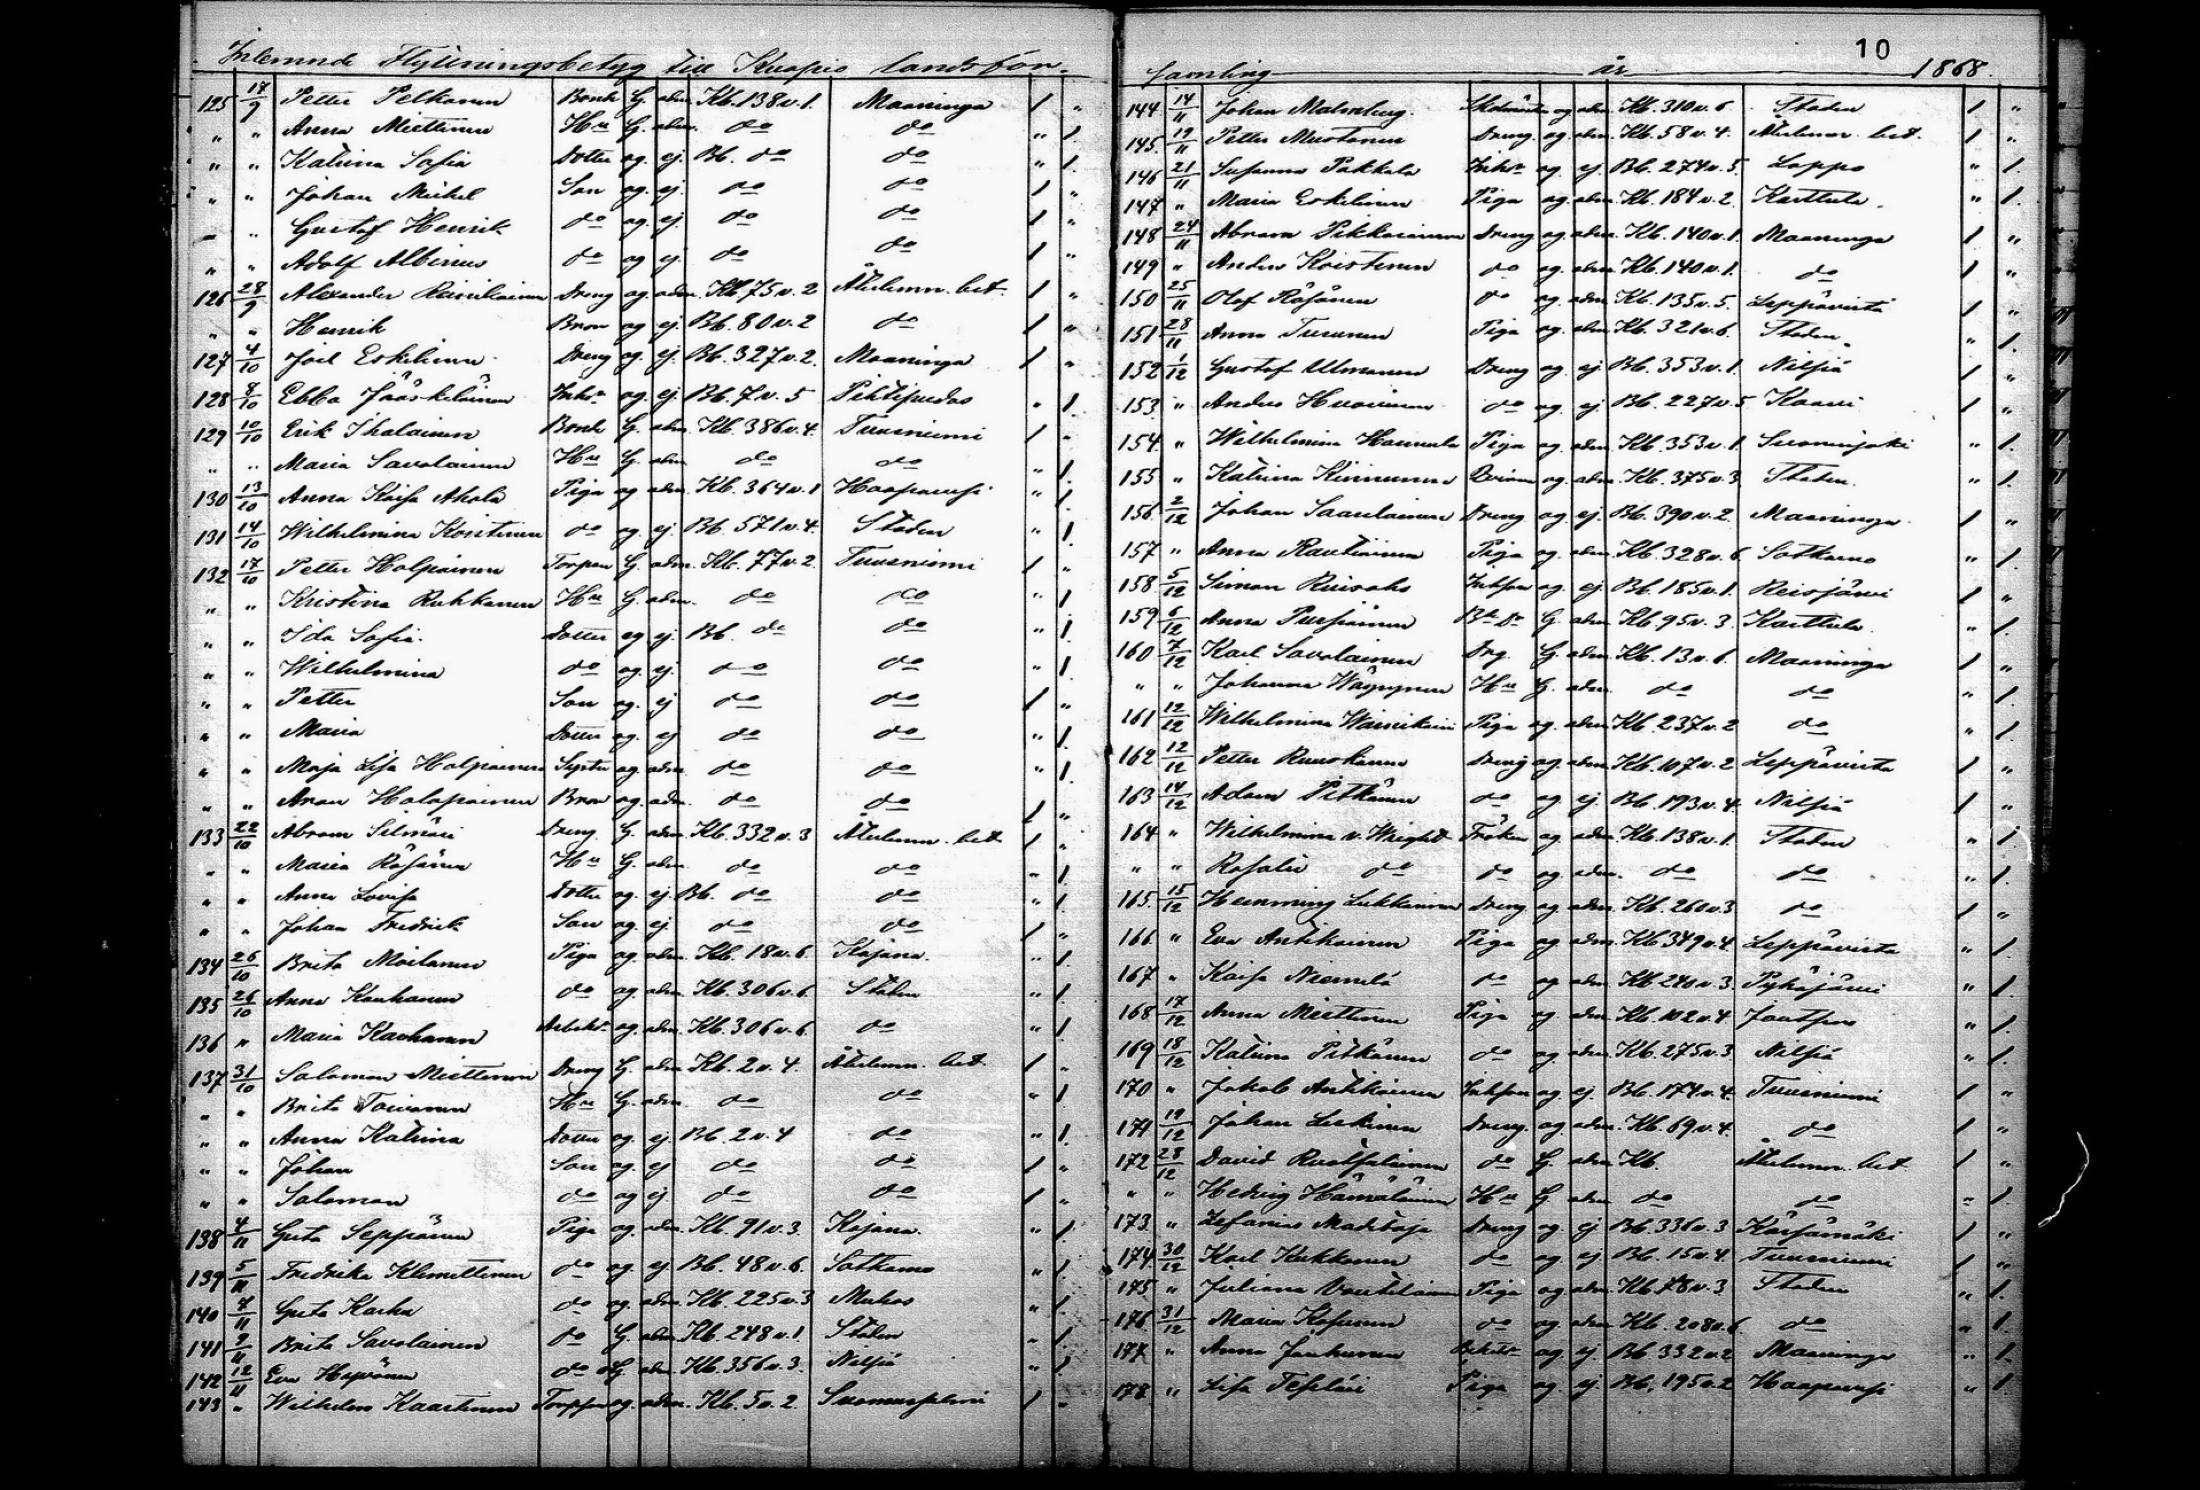 Inlemnde Flyttningsbetyg till Kuopio landsför-
125 18/9 Petter Pelkonen Bonde G. adm. Kb. 138 v. 1. Maaninga 1 "
" " Anna Miettinen Hu G. adm. do do " 1.
" " Katrina Sofia Dotter og. ej. Bb. do do " 1.
" " Johan Mickel Son og. ej. do do 1 "
" " Gustaf Henrik do og. ej. do do 1 "
" " Adolf Albinus do og ej. do do 1 "
126 28/9 Alexander Dreng og adm. Kb. 75 v. 2 Återlemn. bet. 1 "
" " Henrik Bror og ej. Bb. 80 v. 2 do 1 "
127 4/10 Joel Eskelinen Dreng og. ej. Bb. 327 v. 2. Maaninga 1 "
128 8/10 Ebba Jääskeläinen Inhs. og. ej. Bb. 7 v. 5 Pihtipudas " 1.
129 10/10 Erik Ihalainen Bonde G. adm. Kb. 386 v. 4. Tuusniemi 1 "
" " Maria Savolainen Hu G. adm. do do " 1.
130 13/10 Anna Kaisa Ahola Piga og adm. Kb. 364 v. 1 Haapavesi " 1.
131 14/10 Wilhelmina Korstinen do og. ej. Bb. 571 v. 4. Staden " 1.
132 17/10 Petter Holpainen Torpare G. adm. Kb. 77 v. 2. Tuusniemi 1 "
" " Kristina Ruhkanen Hu G. adm. do do " 1.
" " Ida Sofia. Dotter og ej. Bb. do do " 1.
" " Wilhelmina do og. ej. do do " 1.
" " Petter Son og. ej do do 1 "
" " Maria Dotter og. ej do do " 1.
" " Maja Lisa Holpainen Syster og. adm. do do " 1.
" " Aron Holopainen Bror og. adm. do do 1 "
133 22/10 Abram Dreng G. adm. Kb. 332 v. 3 Återlemn. bet 1 "
" " Maria Räsänen Hu G. adm. do do " 1.
" " Anna Lovisa Dotter og. ej. Bb. do do " 1.
" " Johan Fredrik Son og. ej. do do 1 "
134 26/10 Brita Moilanen Piga og. adm. Kb. 18 v. 6. Kajana. " 1.
135 26/10 Anna Kauhanen do og. adm. Kb. 306 v. 6. Staden " 1.
136 " Maria Kauhanen og. adm. Kb. 306 v. 6. do " 1.
137 31/10 Salomon Miettinen Dreng G. adm. Kb. 2 v. 4. Återlemn. bet. 1 "
" " Brita Toivanen Hu G. adm. do do " 1.
" " Anna Katrina Dotter og. ej. Bb. 2 v. 4 do " 1.
" " Johan Son og. ej do do 1 "
" " Salomon do og ej do do 1 "
138 4/11 Greta Seppänen Piga og. adm. Kb. 91 v. 3. Kajana. " 1.
139 5/11 Fredrika Klemettinen do og. ej Bb. 48 v. 6. Sotkamo " 1.
140 7/11 Greta Karhu do og. adm. Kb. 225 v. 3 Muhos " 1.
141 9/11 Brita Savolainen do G. adm. Kb. 248 v. 1. Staden " 1.
142 12/11 Eva Hyvönen do G. adm. Kb. 356 v. 3. Nilsiä " 1.
143 " Wilhelm Kaartinen og. adm. Kb. 5 v. 2. 1 "
10
samling år 1868.
144 14/11 Johan Malmberg. og adm. Kb. 310 v. 6 Staden 1 "
145. 19/11 Petter Mustonen Dreng. og. adm. Kb. 58 v. 4. Återlemn. bet. 1 "
146 21/11 Susanna Pakkala Inhs. og. ej. Bb. 274 v. 5. Lappo " 1.
147 " Maria Eskelinen Piga og. adm. Kb. 184 v. 2. Karttula. " 1.
148 24/11 Abram Pikkarainen Dreng og. adm. Kb. 140 v. 1. Maaninga 1 "
149 " Anders Koistinen do og. adm. Kb. 140 v. 1. do 1 "
150 25/11 Olof Räsänen do og. adm. Kb. 135 v. 5. Leppävirta 1 "
151 28/11 Anna Turunen Piga og. adm. Kb. 321 v. 6. Staden " 1.
152 1/12 Gustaf Ulmanen Dreng og. ej Bb. 353 v. 1. Nilsiä 1 "
153 " Anders do og. ej Bb. 227 v. 5 Kaavi 1 "
154. " Wilhelmina Hannula Piga og. adm. Kb. 353 v. 1. " 1.
155 " Katrina Kinnunen og. adm. Kb. 375 v. 3 Staden. " 1.
156. 2/12 Johan Saarelainen Dreng og. ej. Bb. 390 v. 2. Maaninga. 1 "
157 " Anna Rautiainen Piga og. adm. Kb. 328 v. 6. Sotkamo " 1.
158 5/12 Simon Inhson og. ej. Bb. 185 v. 1. Reisjärvi 1 "
159 6/12 Anna Pursiainen G. adm. Kb. 95 v. 3. Karttula. " 1.
160 7/12 Karl Savolainen Drg. G. adm. Kb. 13 v. 6. Maaninga 1 "
" " Johanna Wäyrynen Hu G. adm. do do " 1.
161 12/12 Wilhelmina Piga og. adm. Kb. 237 v. 2 do " 1.
162 12/12 Petter Ruuskanen Dreng og. adm. Kb. 107 v. 2 Leppävirta 1 "
163 14/12 Adam Pitkänen do og ej. Bb. 193 v. 4. Nilsiä 1 "
164 " Wilhelmina v. Wright Fröken og adm. Kb. 138 v. 1. Staden " 1.
" " Rosalie do do og adm. do do " 1.
165. 15/12 Hemming Lukkarinen Dreng og. adm. Kb. 260 v. 3 do 1 "
166. " Eva Antikainen Piga og. adm. Kb. 349 v. 4. Leppävirta " 1.
167 " Kaisa Niemelä do og. adm. Kb. 240 v. 3. Pyhäjärvi " 1.
168 17/12 Anna Miettinen Piga og. adm. Kb. 102 v. 4. " 1.
169 18/12 Katrina Pitkänen do og. adm. Kb. 275 v. 3 Nilsiä " 1.
170 " Jakob Antikainen Inhson og. ej. Bb. 174 v. 4. Tuusniemi 1 "
171 19/12 Johan Leskinen Dreng. og. adm. Kb. 69 v. 4. do 1 "
172 28/12 David do G. adm. Kb. Återlemn. bet. 1 "
" " Hedvig Hämäläinen Hu G. adm. do do " 1.
173. " Zefanias Madetoja Dreng og ej Bb. 336 v. 3 Kärsämäki 1 "
174 30/12 Karl Kukkonen do og. ej Bb. 15 v. 4. Tuusniemi 1 "
175 " Juliana Voutilainen Piga og. adm. Kb. 78 v. 3 Staden " 1.
176 31/12 Maria Kosunen do og. adm. Kb. 208 v. 6. do " 1.
177 " Anna og. ej. Bb. 332 v. 2 Maaninga " 1.
178. " Lisa Piga og. ej Bb. 195 v. 2 Haapavesi " 1.